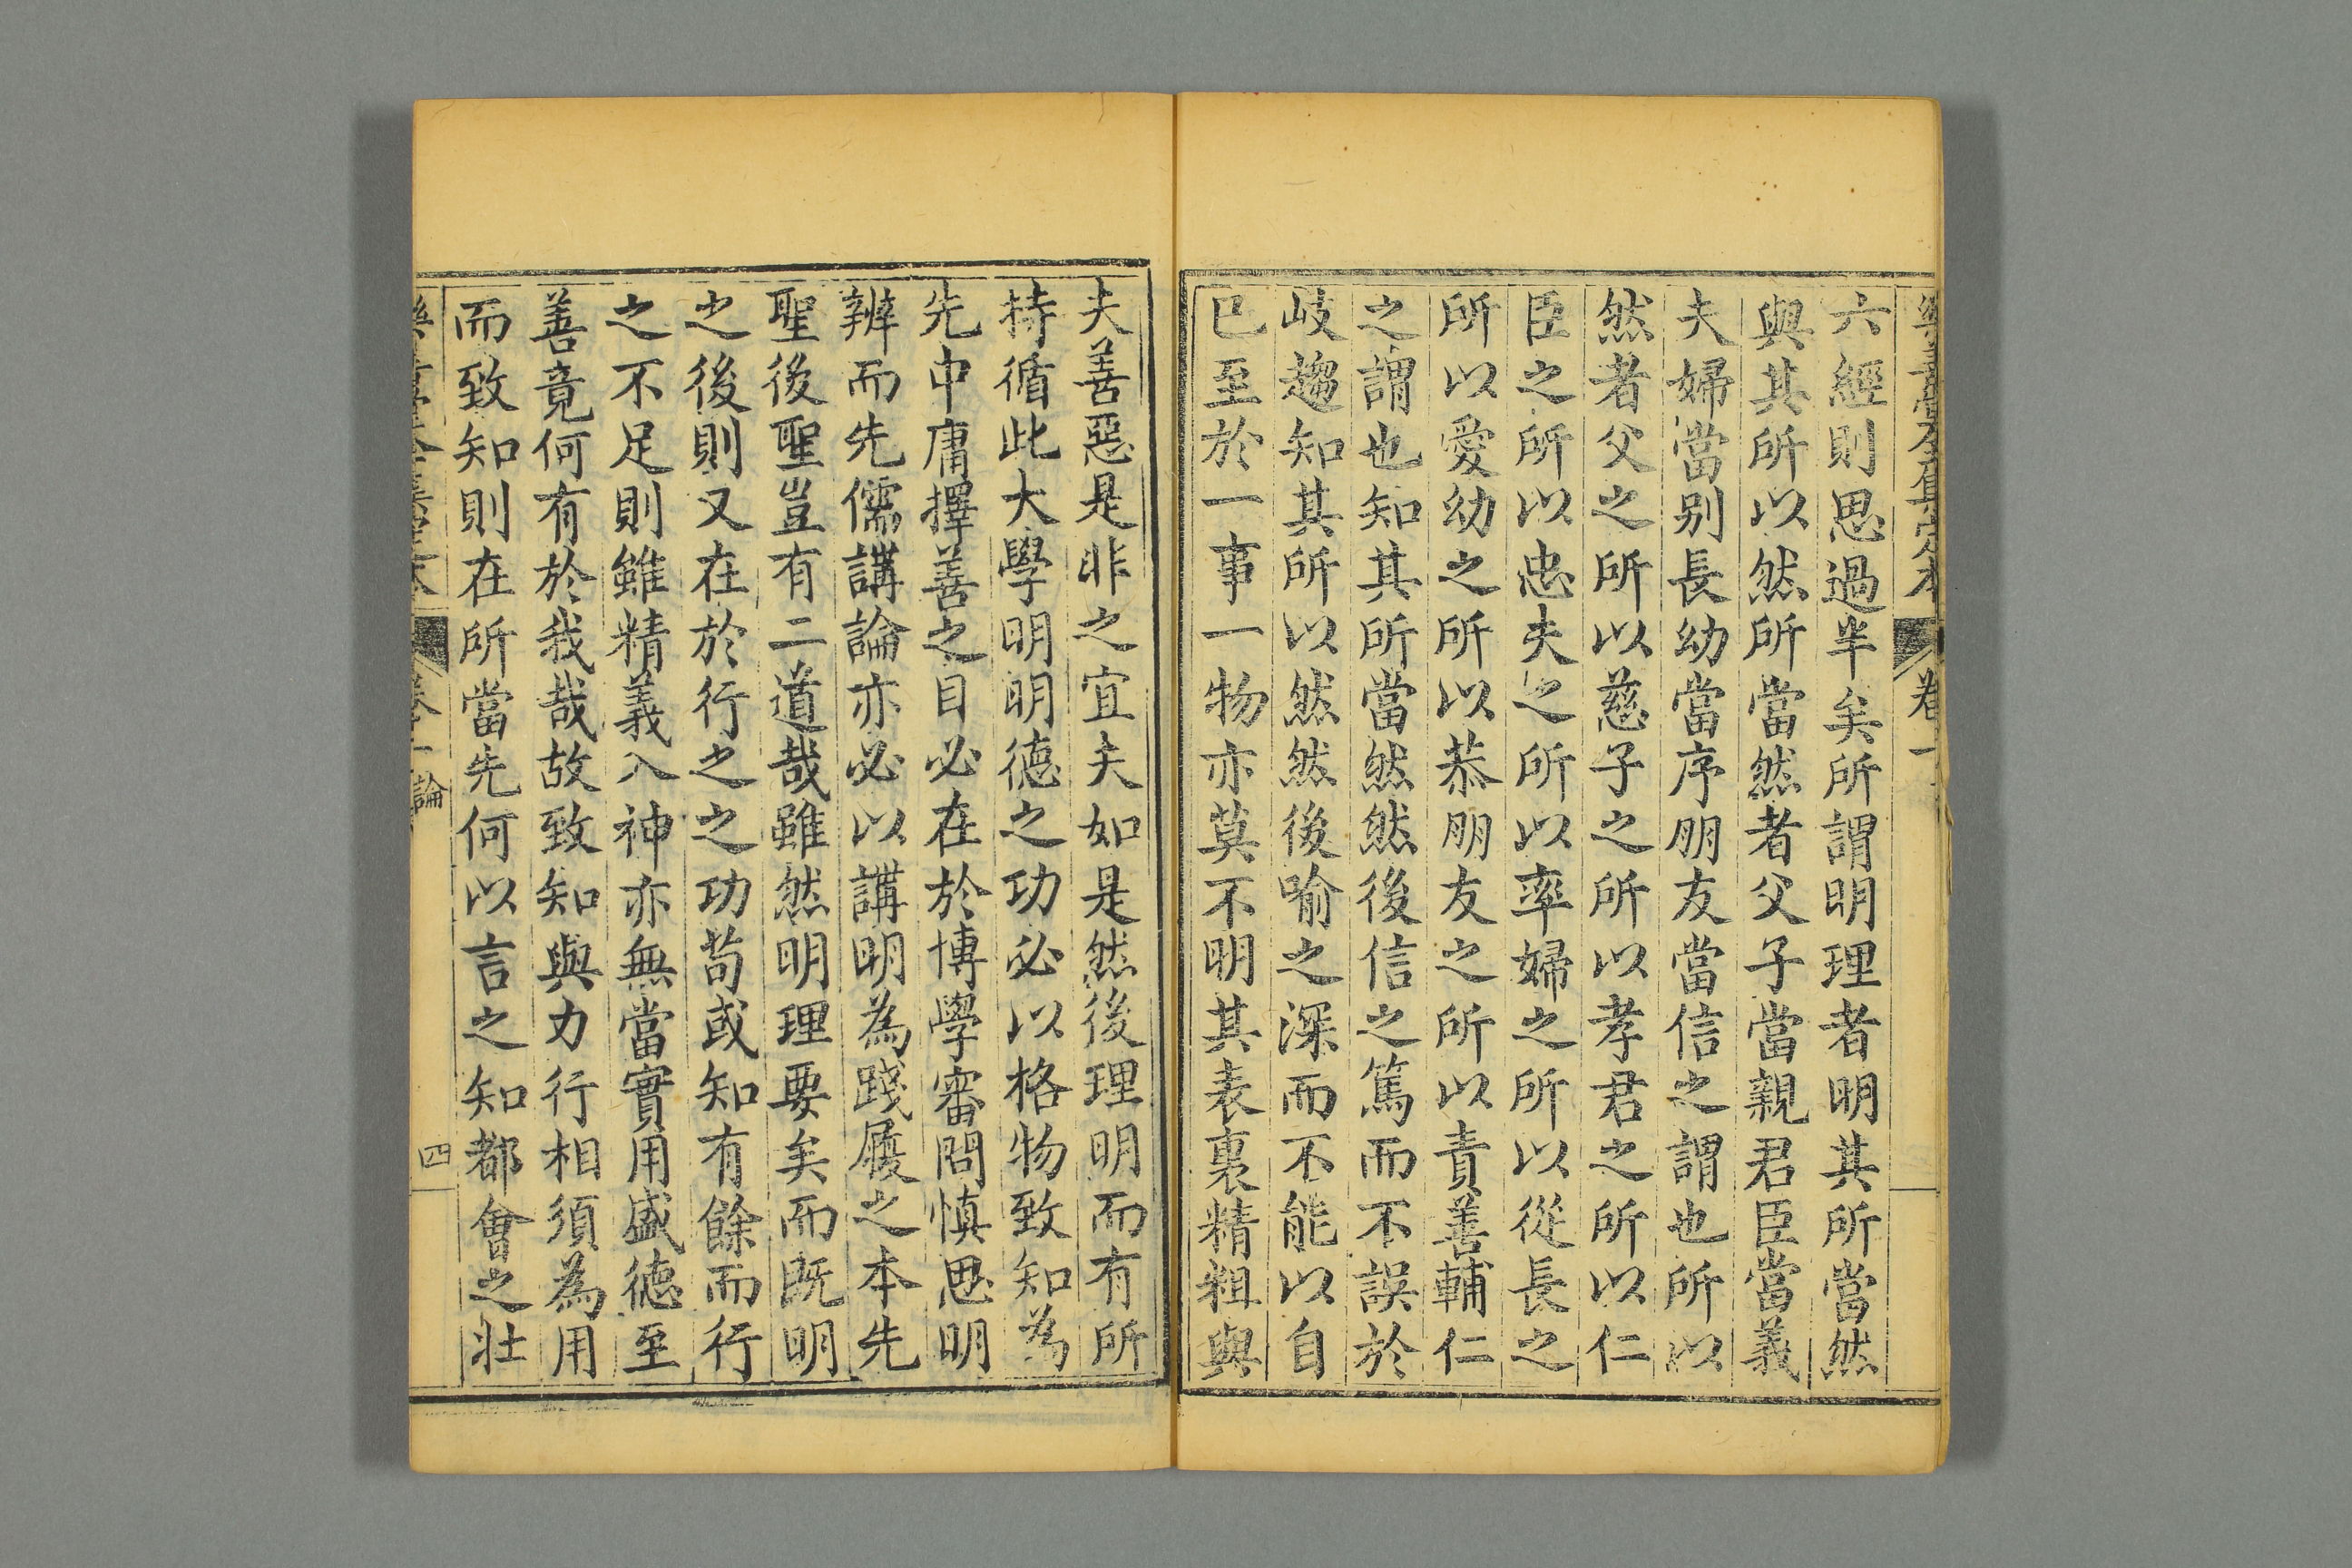 樂善堂全集定本 卷一
六經則思過半矣所謂明理者明其所當然
與其所以然所當然者父子當親君臣當義
夫婦當別長幼當序朋友當信之謂也所以
然者父之所以慈子之所以孝君之所以仁
臣之所以忠夫之所以率婦之所以從長之
所以愛幼之所以恭朋友之所以責善輔仁
之謂也知其所當然然後信之篤而不誤於
岐趨知其所以然然後喻之深而不能以自
已至於一事一物亦莫不明其表裏精粗與
夫善惡是非之宜夫如是然後理明而有所
持循此大學明明德之功必以格物致知為
先中庸擇善之目必在於博學審問慎思明
辨而先儒講論亦必以講明為踐履之本先
聖後聖豈有二道哉雖然明理要矣而既明
之後則又在於行之之功苟或知有餘而行
之不足則雖精義入神亦無當實用盛德至
善竟何有於我哉故致知與力行相須為用
而致知則在所當先何以言之知都會之壯
樂善堂全集定本 卷一 論 四